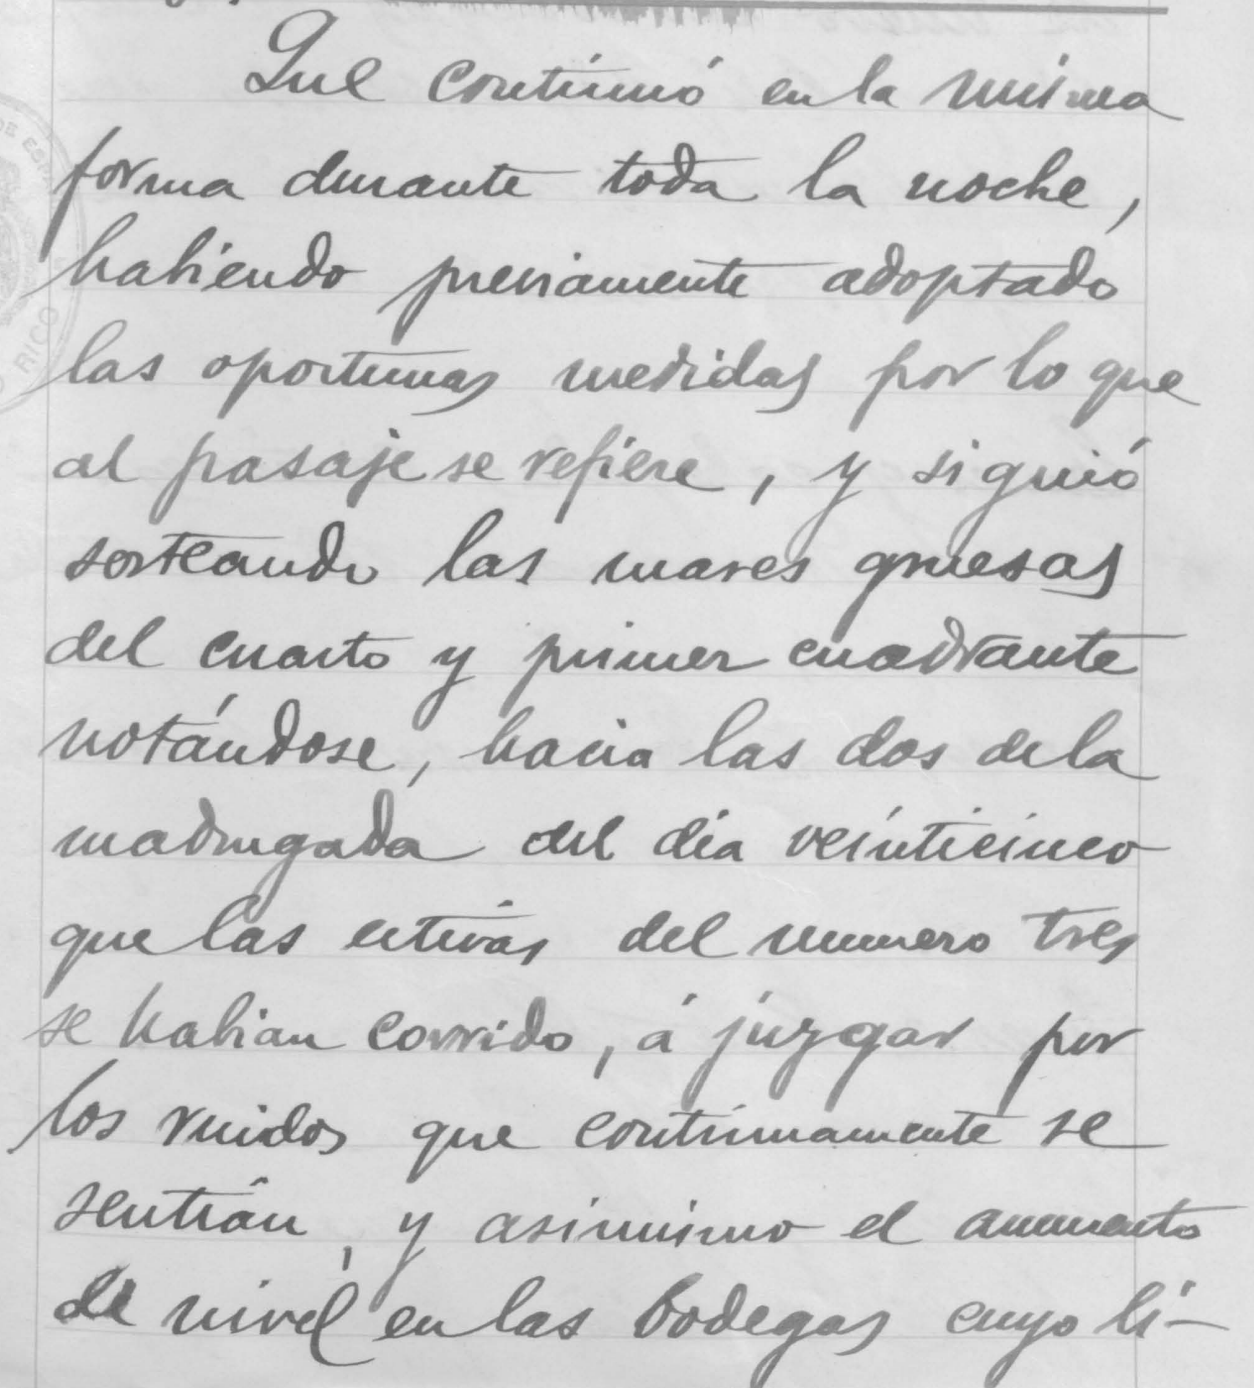 Que continuó en la misma
forma durante toda la noche,
habiendo previamente adoptado
las oportunas medidas por lo que
al pasaje se refiere, y siguió
sorteando las mares gruesas
del cuarto y primer cuadrante
notándose, hacia las dos de la
madrugada del dia veinticinco
que las estivas del numero tres
se habian corrido, á juzgar por
los ruidos que continuamente se
sentian, y asimismo el aumento
de nivel en las bodegas cuyo lí-